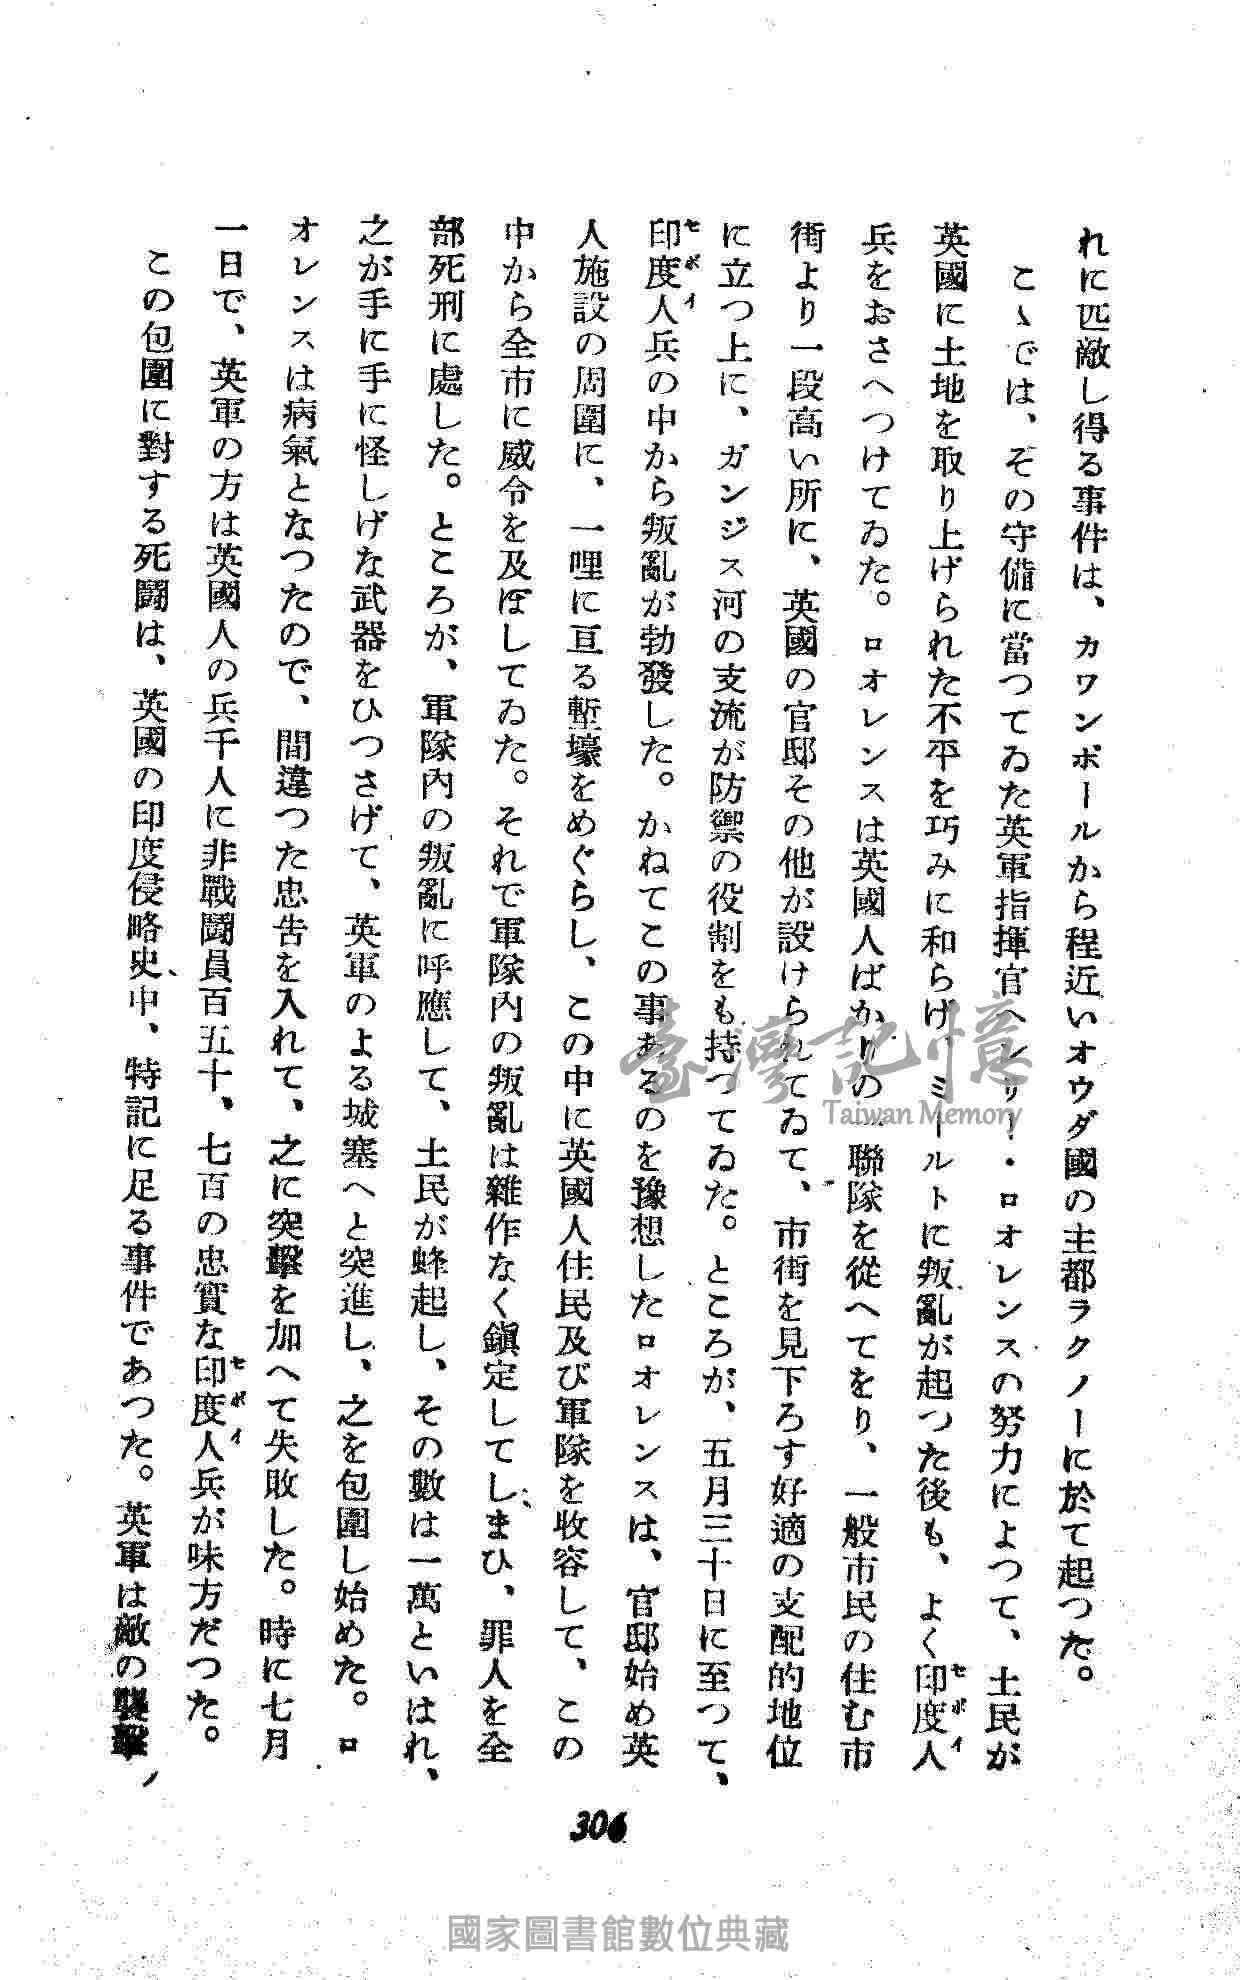 れに匹敵し得る事件は、カワンポールから程近いオウダ國の主都ラクノーに於て起つた。
こゝでは、その守備に當つてゐた英軍指揮官ヘンリー・ロオレンスの努力によつて、土民が
英國に土地を取り上げられた不平を巧みに和らげ、ミールトに叛亂が起つた後も、よく印度人
セポイ
兵をおさへつけてゐた。ロオレンスは英國人ばかりの一聯隊を從へてをり、一般市民の住む市
街より一段高い所に、英國の官邸その他が設けられてゐて、市街を見下ろす好適の支配的地位
に立つ上に、ガンジス河の支流が防禦の役割をも持つてゐた。ところが、五月三十日に至つて、
セポイ
印度人兵の中から叛亂が勃發した。かねてこの事あるのを豫想したロオレンスは、官邸始め英
人施設の周圍に、一哩に亘る塹壕をめぐらし、この中に英國人住民及び軍隊を收容して、この
中から全市に威令を及ぼしてゐた。それで軍隊內の叛亂は雜作なく鎭定してしまひ、罪人を全
部死刑に處した。ところが、軍隊內の叛亂に呼應して、土民が蜂起し、その數は一萬といはれ、
之が手に手に怪しげな武器をひつさげて、英軍のよる城塞へと突進し、之を包圍し始めた。ロ
オレンスは病氣となつたので、間違つた忠吿を入れて、之に突擊を加へて失敗した。時に七月
一日で、英軍の方は英國人の兵千人に非戰鬪員百五十、七百の忠實な印度人兵が味方だつた。
セポイ
この包圍に對する死鬪は、英國の印度侵略史中、特記に足る事件であつた。英軍は敵の襲擊ノ
306
臺灣記憶
Taiwan Memory
國家圖書館數位典藏